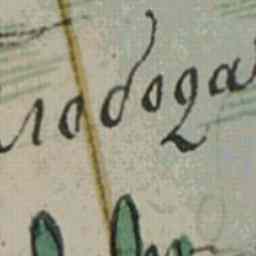 лобода